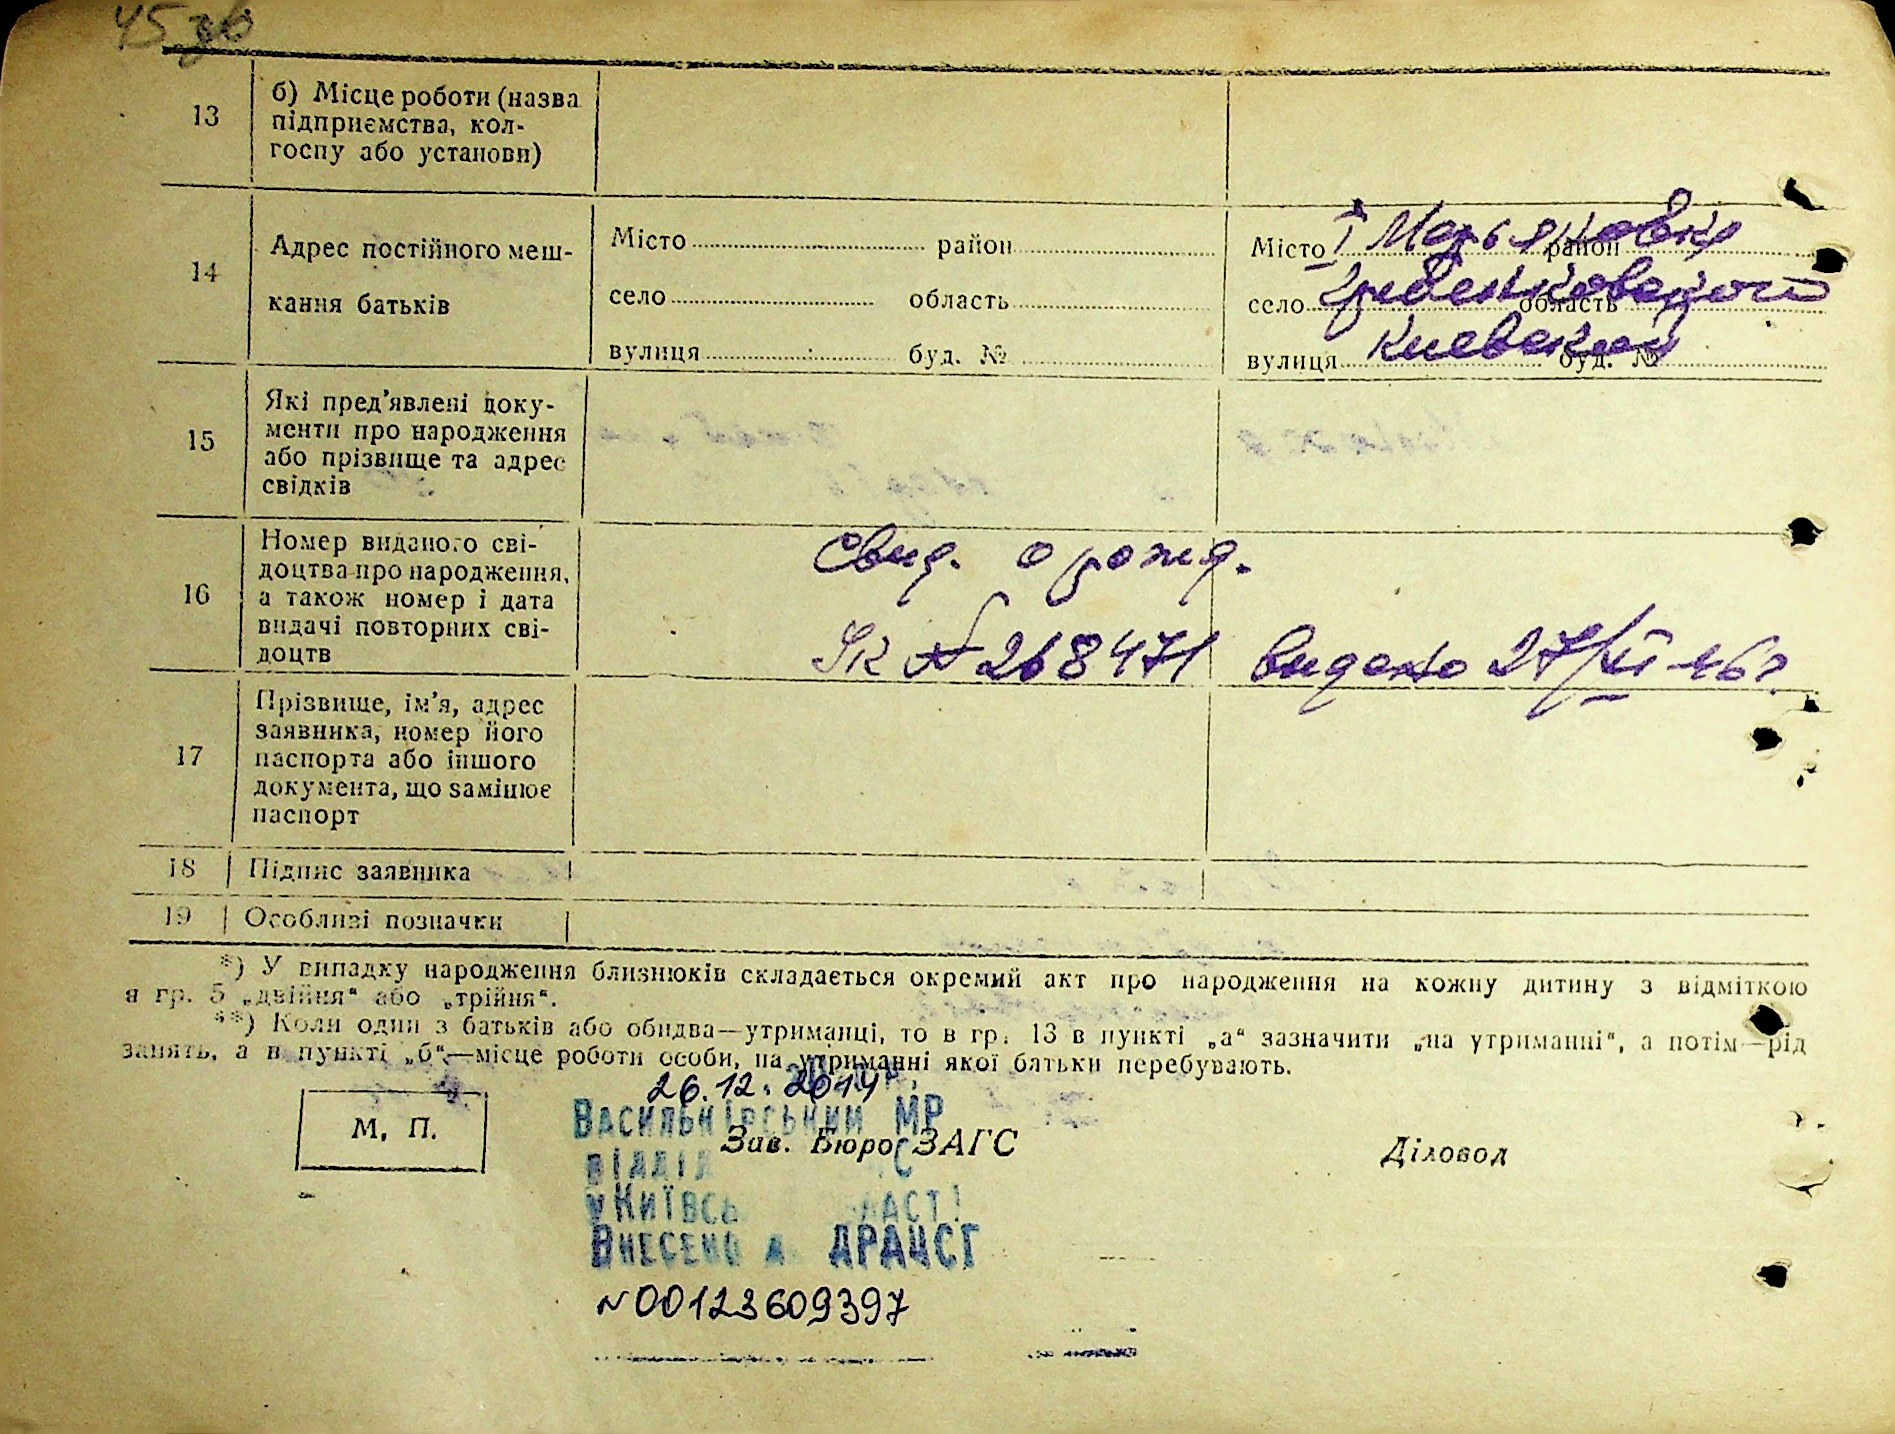 45 зв
13
б) Місце роботи (назва
підприємства, кол-
госпу або установи)
14
Адрес постійного меш-
кання батьків
Місто район
село область
вулиця буд. №
Місто І Марьяновка район
село Гребенковского область
вулиця Киевской буд. №
15
Які пред'явлені доку-
менти про народження
або прізвище та адрес
свідків
16
Номер виданого сві-
доцтва про народження,
а також номер і дата
видачі повторних сві-
доцтв
Свид. о рожд.
№ 268471 видано 27/XI-46г
17
Прізвище, ім'я, адрес
заявника, номер його
паспорта або іншого
документа, що замінює
паспорт
18 Підпис заявника
19 Особливі позначки
*) У випадку народження близнюків складається окремий акт про народження на кожну дитину з відміткою
в гр. 5 „двійня" або „трійня".
**) Коли один з батьків або обидва—утриманці, то в гр. 13 в пункті „а" зазначити „на утриманні", а потім—рід
занять, а в пункті „б"—місце роботи особи, на утриманні якої батьки перебувають.
26.12.2014
М. П.
Васильківський МР
Зав. Бюро ЗАГС
Діловод
відділ
у Київсь ласті
Внесено д ДРАЦСГ
N00123609397